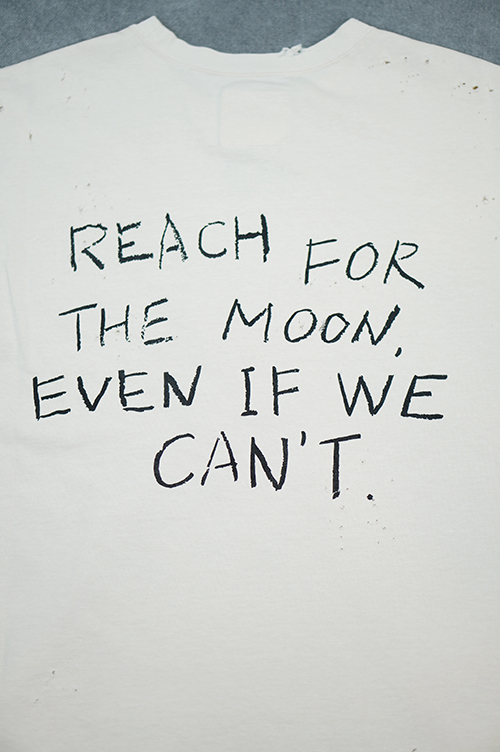 REACH FOR
THE MOON,
EVEN IF WE
CAN'T.